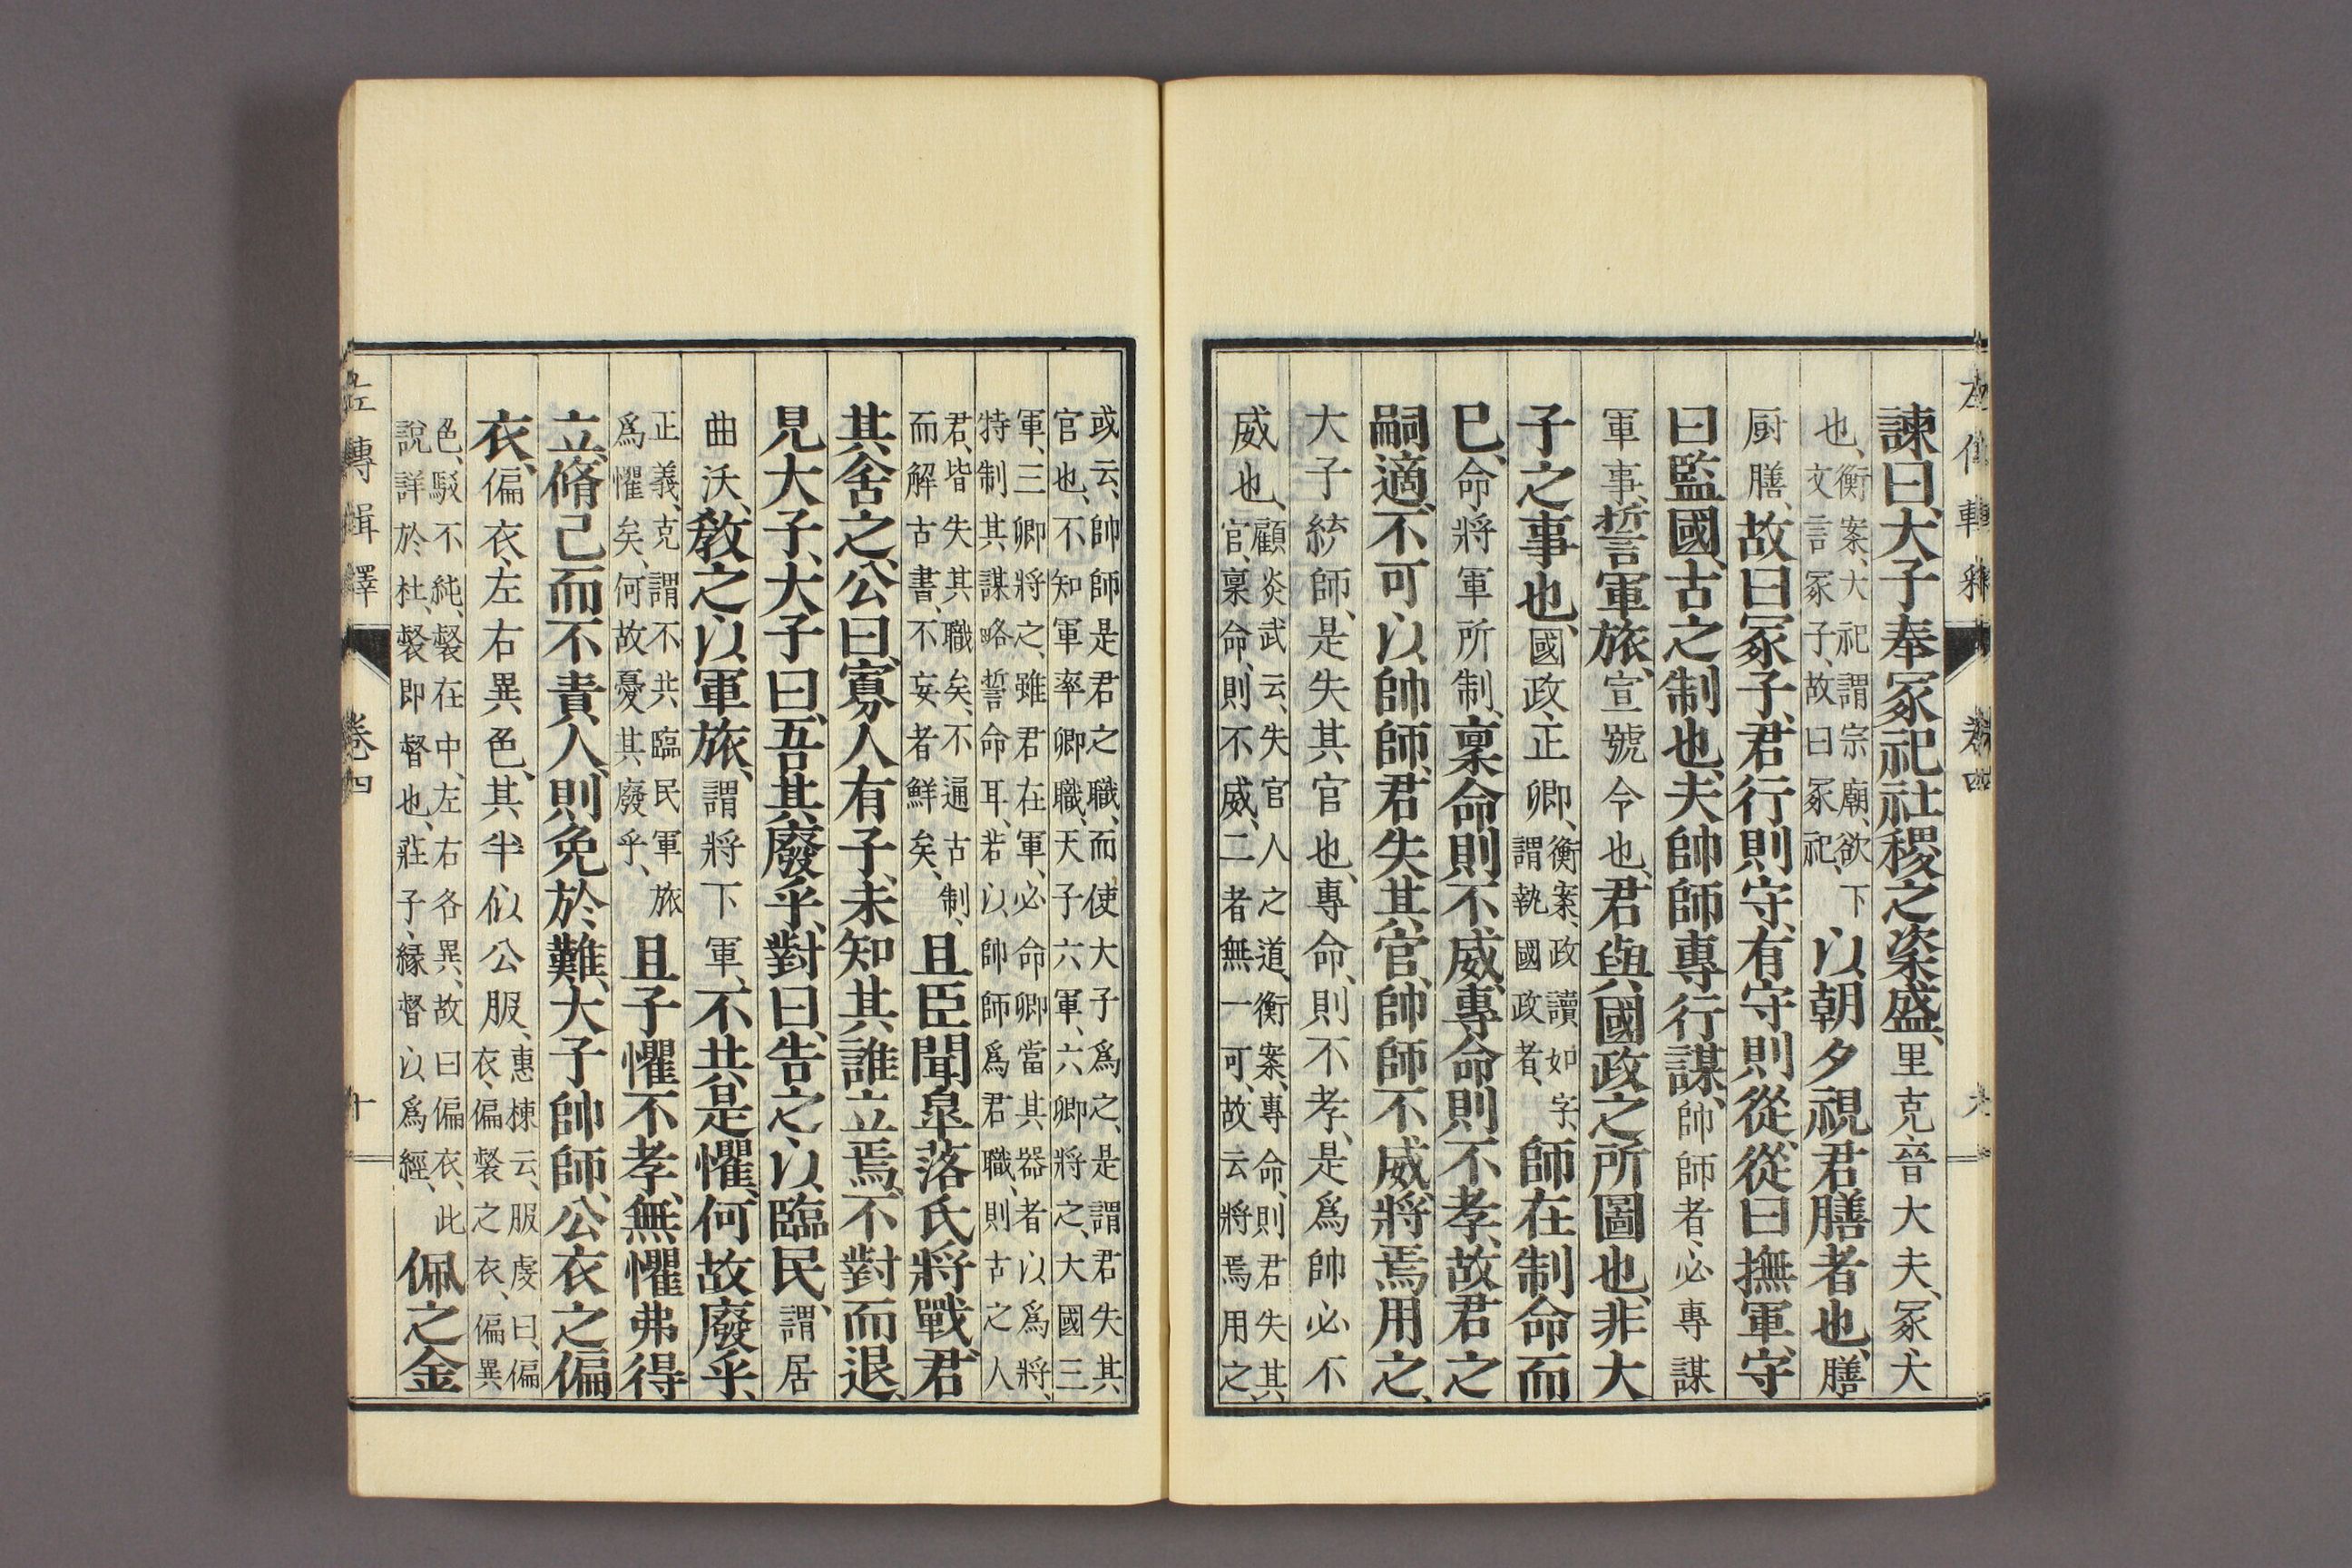 左傳輯釋　卷四　九
諫曰、大子奉冢祀社稷之粢盛、里克、晉大夫、冢、大
也、衡案、大祀謂宗廟、欲下文言冢子、故曰冢祀、以朝夕視君膳者也、膳、
厨膳、故曰冢子、君行則守、有守則從、從曰撫軍、守
曰監國、古之制也、夫帥師專行謀、帥師者、必專謀
軍事、誓軍旅、宣號令也、君與國政之所圖也、非大
子之事也、國政、正卿、衡案、政讀如字、謂執國政者、師在制命而
已、命將軍所制、稟命則不威、專命則不孝、故君之
嗣適、不可以帥師、君失其官、帥師不威、將焉用之、
大子統師、是失其官也、專命、則不孝、是爲帥必不
威也、顧炎武云、失官人之道、衡案、專命、則君失其官、稟命、則不威、二者無一可、故云將焉用之、
或云、帥師是君之職、而使大子爲之、是謂君失其官也、不知軍率卿職、天子六軍、六卿將之、大國三
軍、三卿將之、雖君在軍、必命卿當其器者以爲將、特制其謀略誓命耳、若以帥師爲君職、則古之人
君、皆失其職矣、不通古制、而解古書、不妄者鮮矣、且臣聞皐落氏將戰、君
其舍之、公曰、寡人有子、未知其誰立焉、不對而退、
見大子、大子曰、吾其廢乎、對曰、告之以臨民、謂居
曲沃、教之以軍旅、謂將下軍、不共是懼、何故廢乎、
正義、克謂不共臨民軍旅爲懼矣、何故憂其廢乎、且子懼不孝、無懼弗得
立、脩己而不責人、則免於難、大子帥師、公衣之偏
衣、偏衣、左右異色、其半似公服、惠棟云、服虔曰、偏衣、偏裻之衣、偏異
色、駁不純、裻在中、左右各異、故曰偏衣、此說詳於杜、裻即督也、莊子、緣督以爲經、佩之金
左傳輯釋　卷四　十